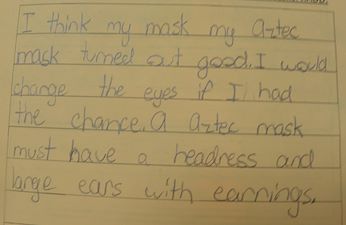 I think my mask my aztec
mask turned out good. I would
change the eyes if I had
the chance. a aztec mask
must have a headress and
large ears with earnings.